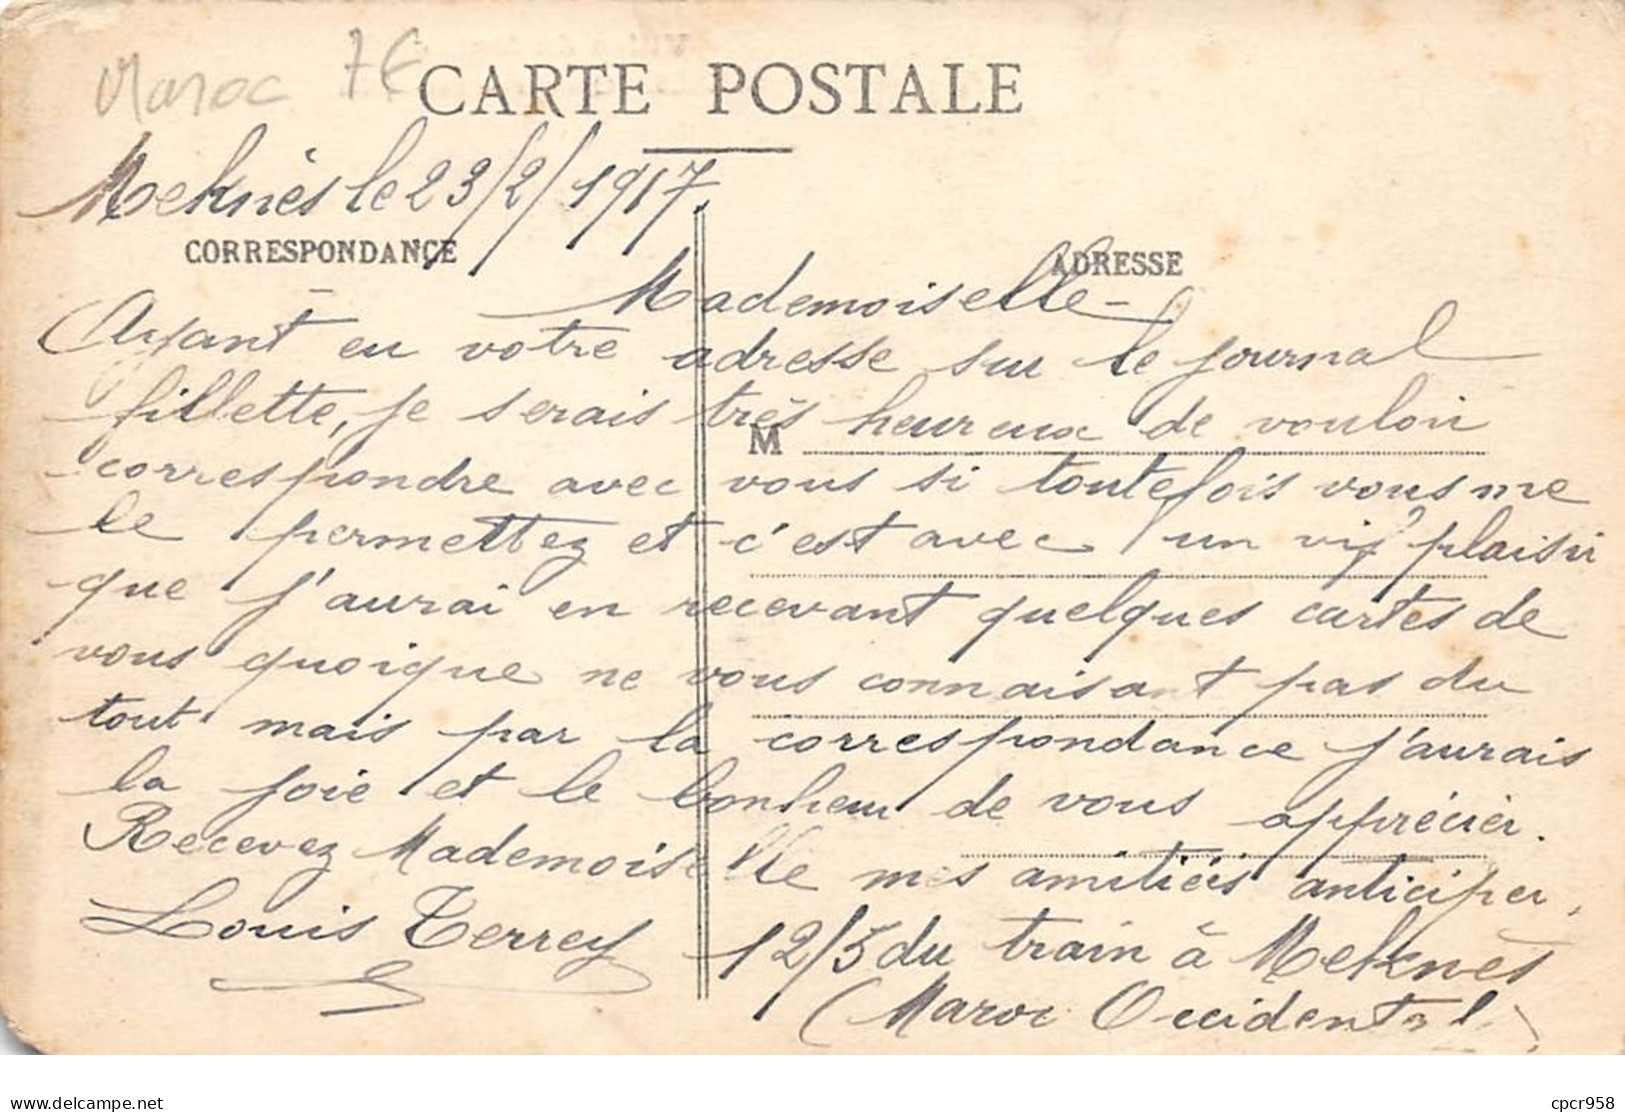 Maroc 7€
CARTE POSTALE
Meknès le 23/2/1917.
CORRESPONDANCE
ADRESSE
Mademoiselle -
Ayant eu votre adresse sur le journal
fillette, je serais très heureux de vouloir
M
correspondre avec vous si toutefois vous me
le permettez et c'est avec un vif plaisir
que j'aurai en recevant quelques cartes de
vous quoique ne vous connaisant pas du
tout mais par la correspondance j'aurais
la joie et le bonheur de vous apprécier.
Recevez Mademoiselle mes amitiés anticiper,
Louis Terrey 12/5 du train à Meknès
(Maroc Occidental)
delcampe.net
cpcr958